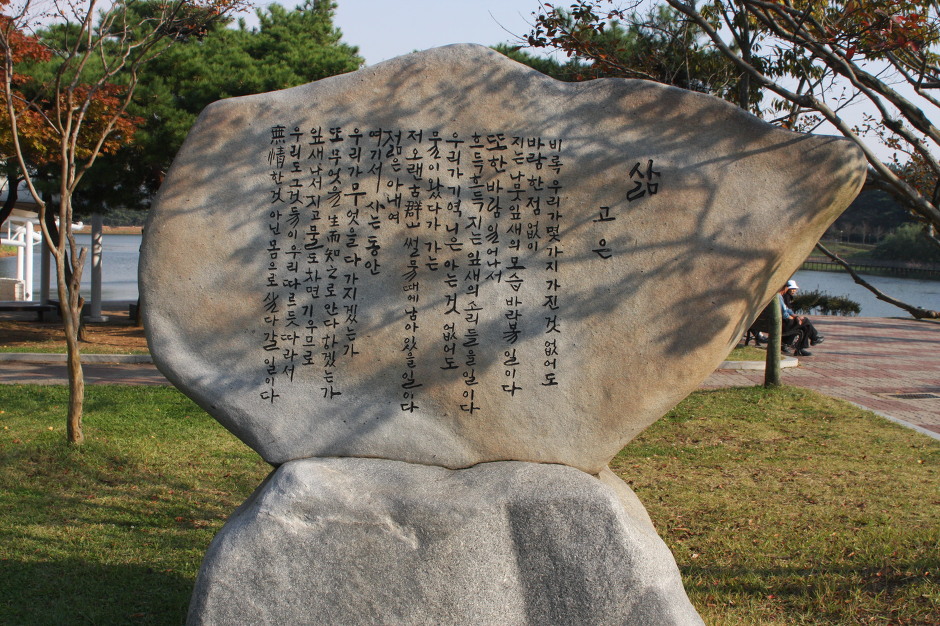 삶
고은
비록 우리가 몇가지 가진 것 없어도
바람 한점 없이
지는 나뭇잎새의 모습 바라볼 일이다
또한 바람 일어나서
흐득흐득 지는 잎새의 소리 들을 일이다
우리가 기역 니은 아는 것 없어도
물이 왔다가 가는
저 오랜 古群山 썰물때에 남아 있을 일이다
젊은 아내여
여기서 사는 동안
우리가 무엇을 다 가지겠는가
또 무엇을 生而知之로 안다 하겠는가
잎새 나서 지고 물도 차면 기우므로
우리도 그것들이 우리 따르듯 따라서
無情한 것 아닌 몸으로 살다 갈 일이다